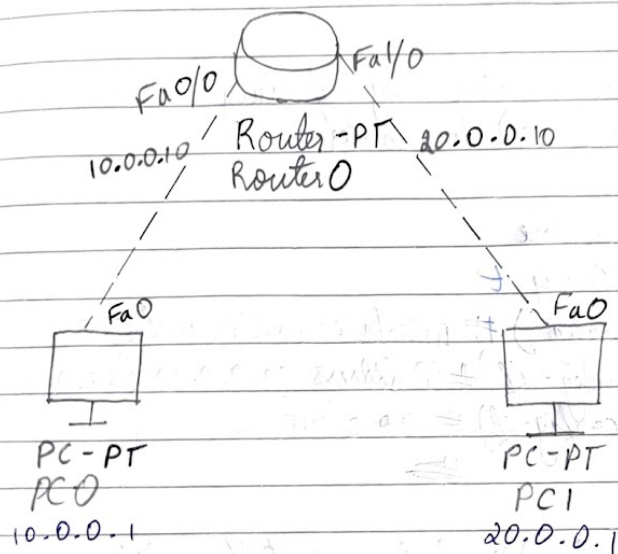 Fa0/0
Fa1/0
10.0.0.10
Router-PT
20.0.0.10
Router0
Fa0
Fa0
PC-PT
PC0
10.0.0.1
PC-PT
PC1
20.0.0.1